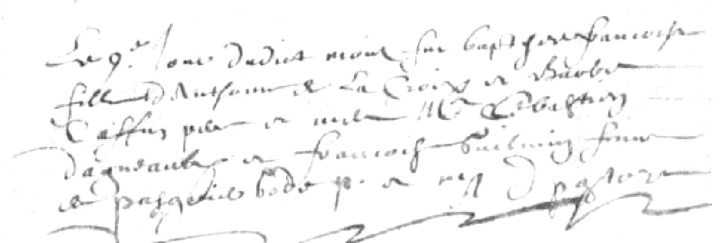 Le 9e Jour dudict mois fut baptisee francoise
fille d'Anthoine de La Croix et Barbe
Caffin pere et mere Me Sebastien
dagneaulx et francoise Guilmin femme
de pasquier bode p. et m.